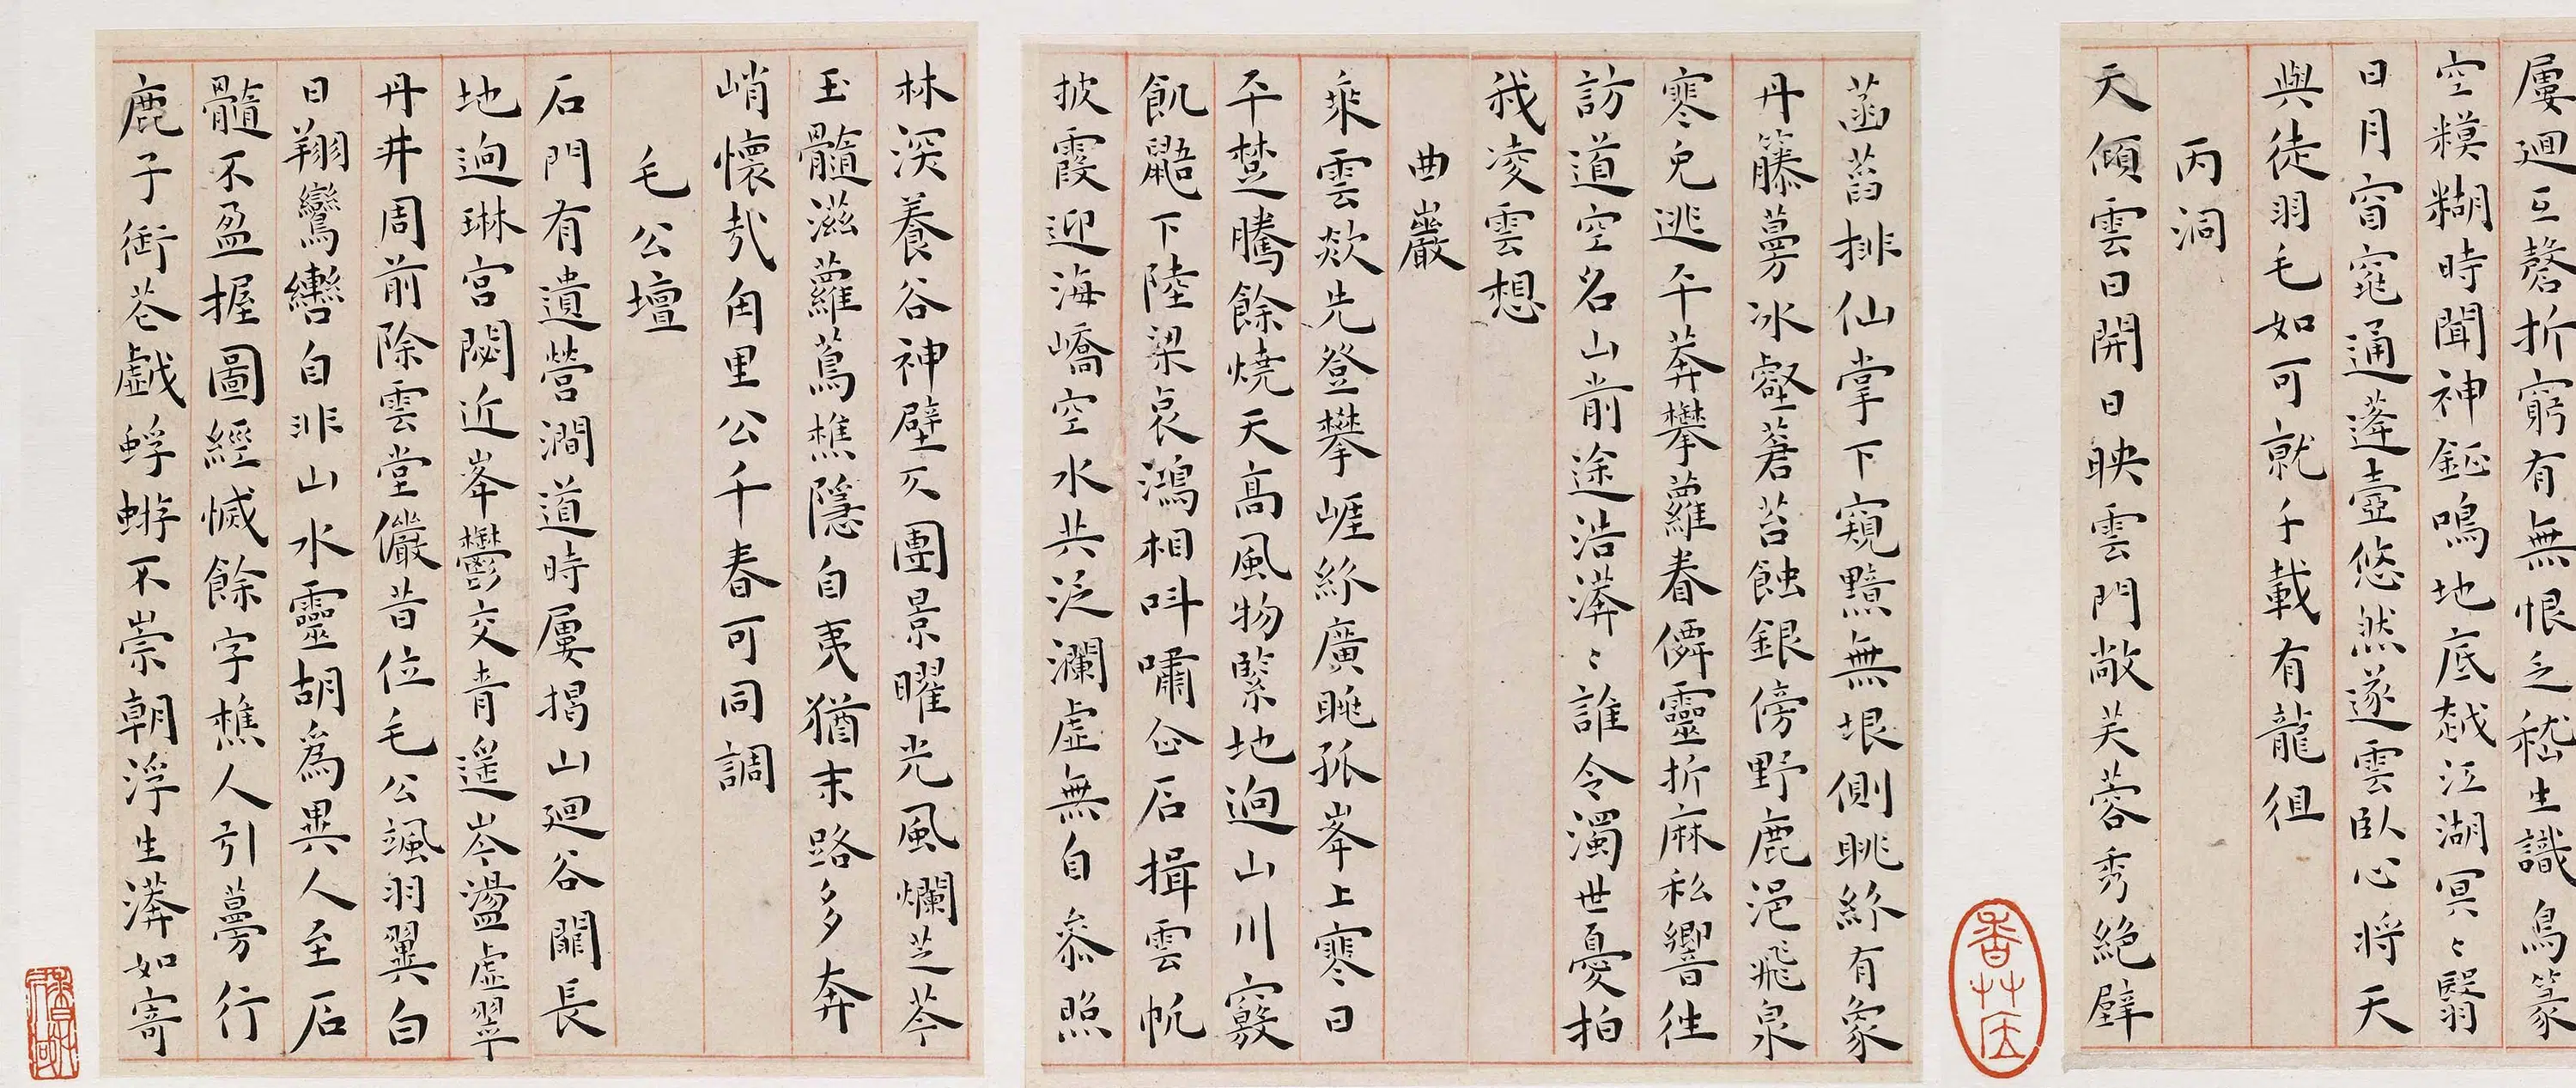 屢迴互磬折窮有無恨乏嵇生識鳥篆
空糢糊時聞神鉦鳴地底越江湖冥〻翳
日月窅窕通蓬壺悠然遂雲臥心將天
與徒羽毛如可就千載有龍徂
丙洞
天傾雲日開日映雲門敞芙蓉秀絕壁
菡萏排仙掌下窺黯無垠側眺紛有象
丹籐蔓冰壑蒼苔蝕銀傍野鹿浥飛泉
寒兔逃平莽攀蘿眷僊靈折麻私嚮往
訪道空名山前途浩漭〻誰令濁世憂拍
我凌雲想
曲巖
乘雲欻先登攀崕紛廣眺孤峯上寒日
平楚騰餘燒天高風物緊地迥山川竅
飢鼯下陸梁哀鴻相叫嘯企石揖雲帆
披霞迎海嶠空水共泛瀾虛無自叅照
林深養谷神壁仄團景曜光風爛芝苓
玉髓滋蘿蔦樵隱自夷猶末路多奔
峭懷哉甪里公千春可同調
毛公壇
石門有遺營澗道時屢揭山廻谷關長
地迥琳宮閟近峯鬱交青遥岑盪虛翠
丹井周前除雲堂儼昔位毛公颯羽翼白
日翔鸞轡自非山水靈胡爲異人至石
髓不盈握圖經惐餘字樵人引蔓行
鹿子銜花戲蜉蝣不崇朝浮生漭如寄
香草垞